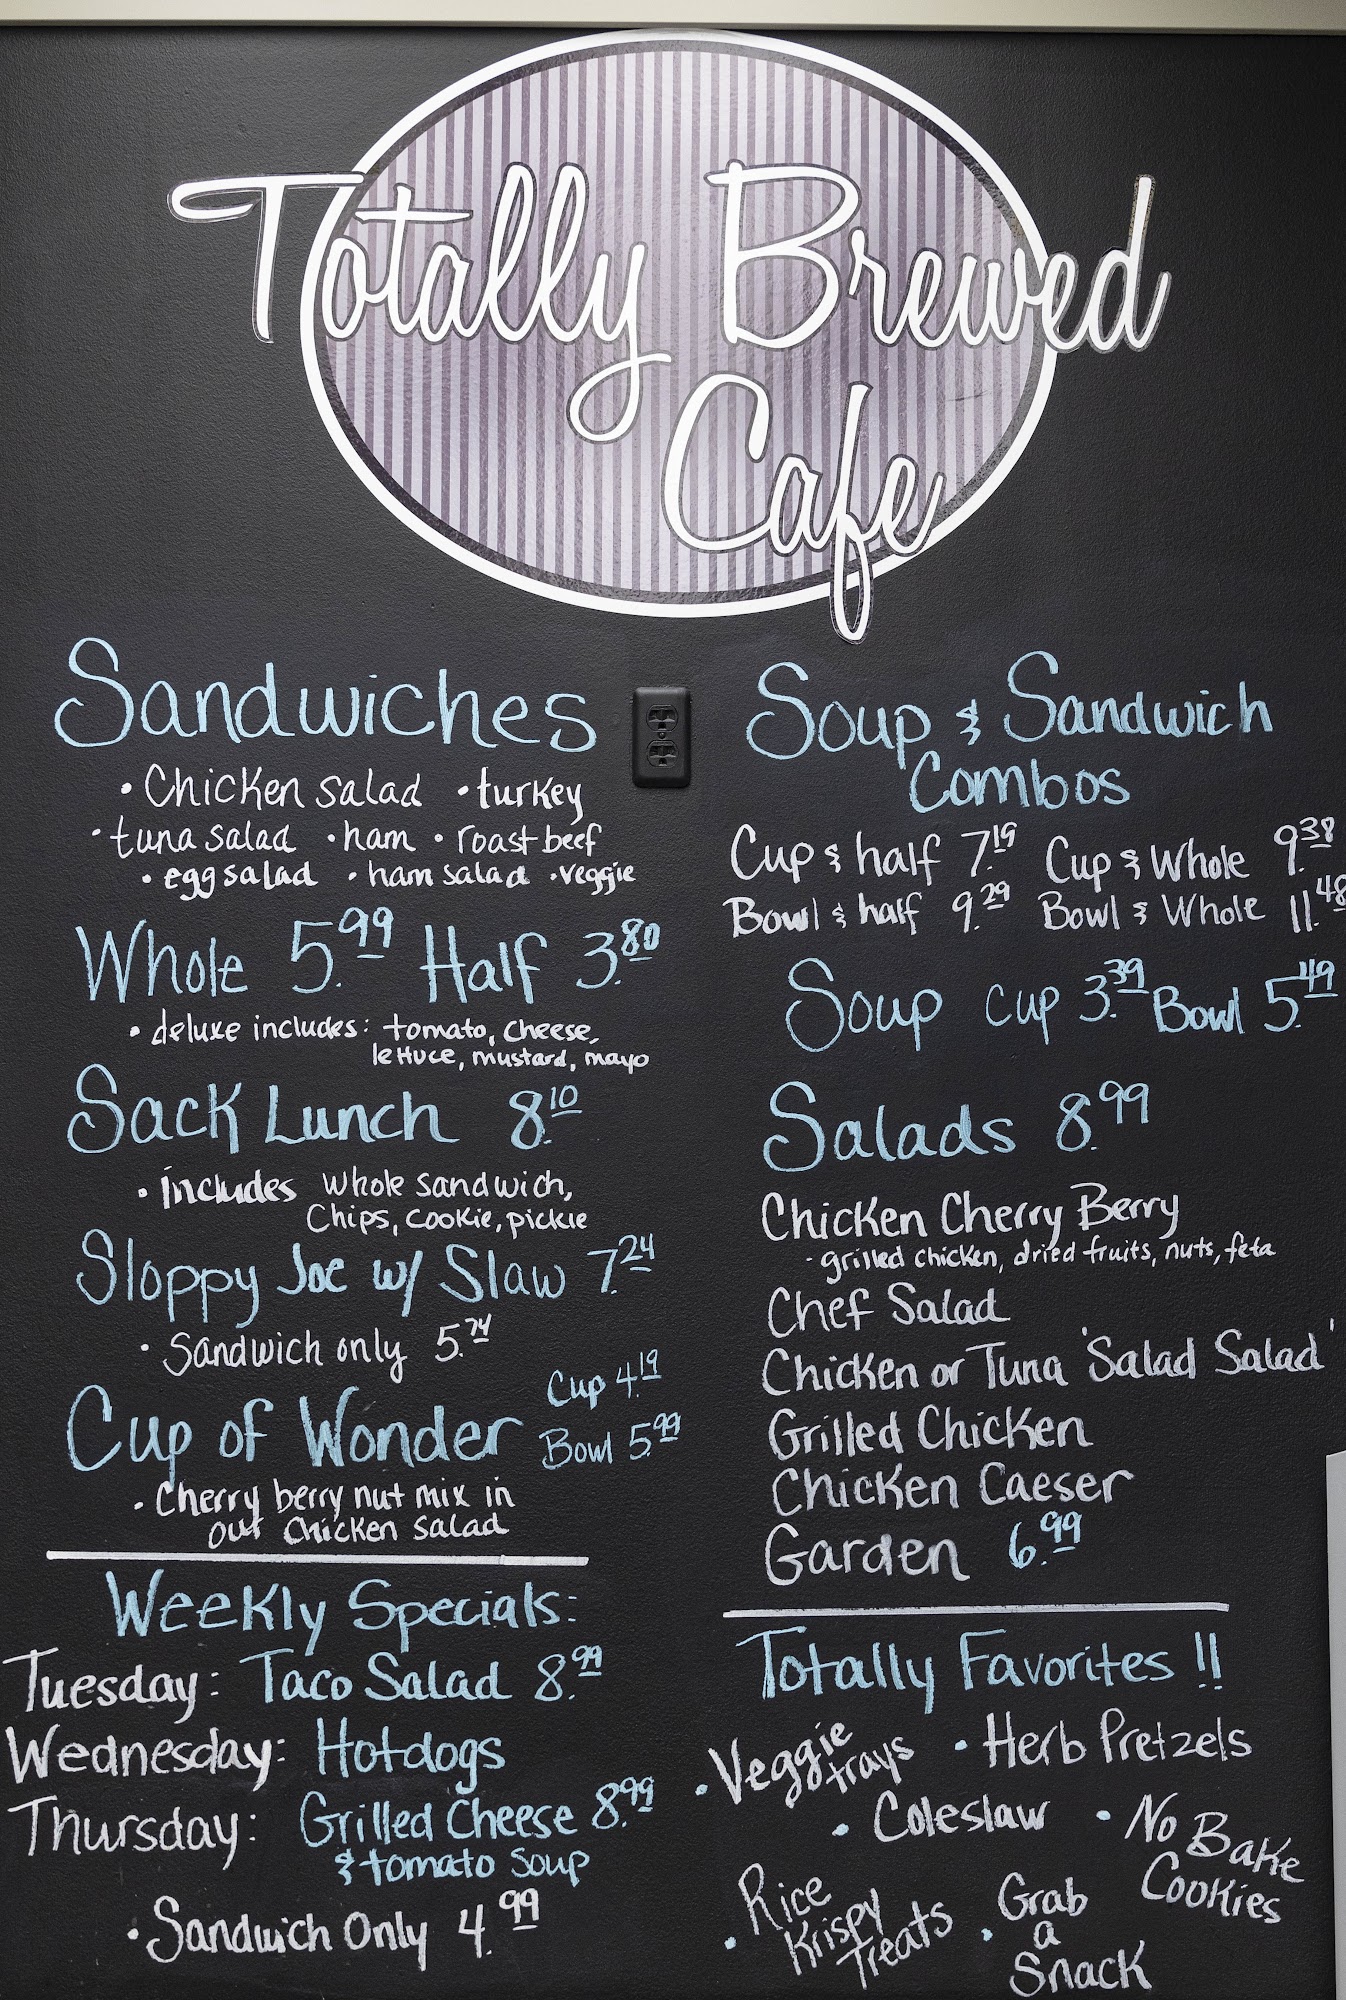 Totally Brewed
Cafe
Sandwiches
• Chicken salad • turkey
• tuna salad • ham • roast beef
• egg salad • ham salad • veggie
Whole 5.99 Half 3.80
• deluxe includes: tomato, cheese,
lettuce, mustard, mayo
Sack Lunch 8.10
• includes whole sandwich,
Chips, cookie, pickle
Sloppy Joe w/ Slaw 7.24
• Sandwich only 5.74
Cup of Wonder Cup 4.19
Bowl 5.99
• Cherry berry nut mix in
our Chicken salad
Weekly Specials:
Tuesday: Taco Salad 8.99
Wednesday: Hotdogs
Thursday: Grilled Cheese 8.99
& tomato soup
• Sandwich Only 4.99
Soup & Sandwich
Combos
Cup & half 7.19 Cup & Whole 9.38
Bowl & half 9.29 Bowl & Whole 11.48
Soup Cup 3.39 Bowl 5.49
Salads 8.99
Chicken Cherry Berry
- grilled chicken, dried fruits, nuts, feta
Chef Salad
Chicken or Tuna 'Salad Salad'
Grilled Chicken
Chicken Caeser
Garden 6.99
Totally Favorites!!
• Veggie trays • Herb Pretzels
• Coleslaw • No Bake
Cookies
• Rice
Krispy
Treats
• Grab
a
Snack